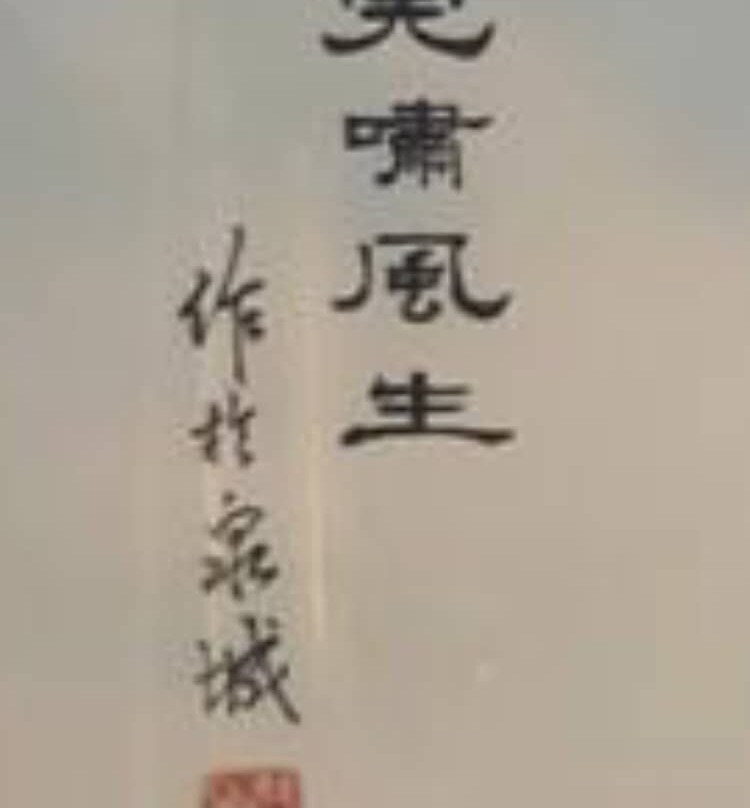 嘯風生
作於泉城